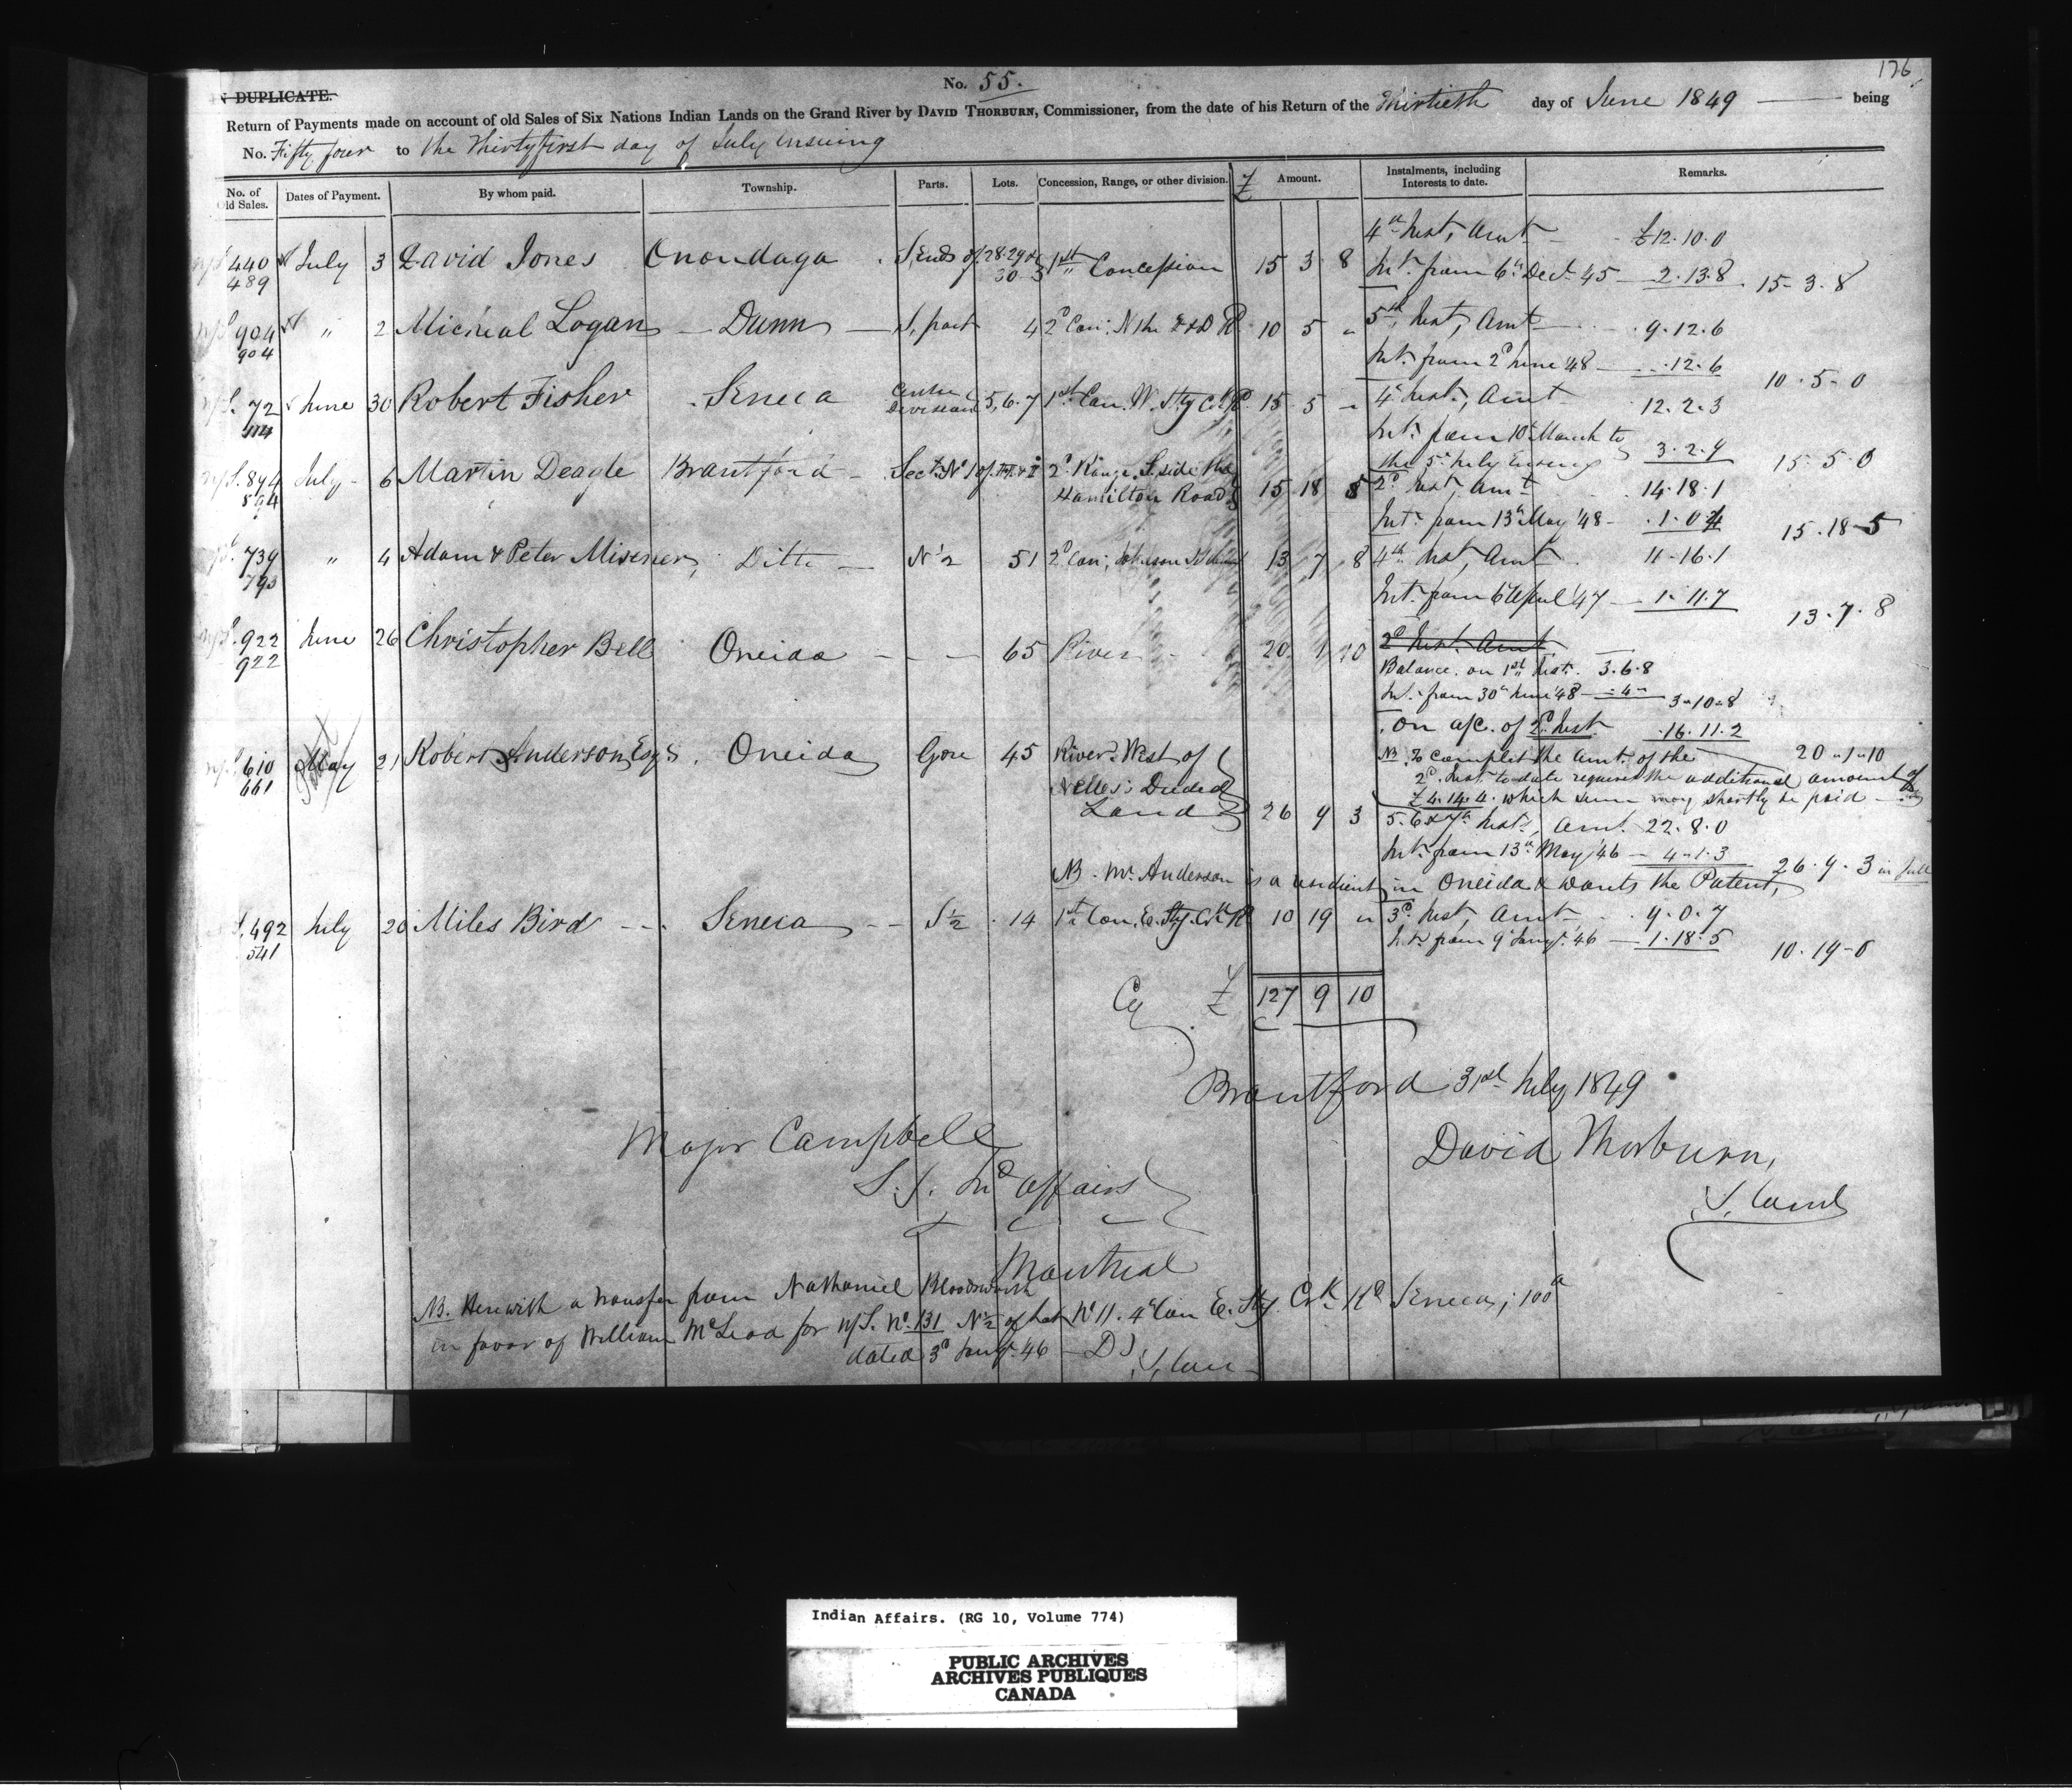 176
No. 55.
IN DUPLICATE.
Return of Payments made on account of old Sales of Six Nations Indian Lands on the Grand River by DAVID THORBURN, Commissioner, from the date of his Return of the Thirtieth day of June 1849 being
No. Fifty four to the Thirtyfirst day of July ensuing
No. of Old Sales. Dates of Payment. By whom paid. Township. Parts. Lots. Concession, Range, or other division. £ Amount. Instalments, including Interests to date. Remarks.
4th Inst, Amt £12.10.0
440 July 3 David Jones Onondaga S. Ends of 28.29 & 30 1st Concession 15 3 8 Int. from 6th Decr. 45 2.13.8 15.3.8
489
904 " 2 Micheal Logan Dunn S. part 4 2d Con; N the R 10 5 " 5th Inst, Amt 9.12.6
904
Int. from 2d June '48 .12.6 10.5.0
72 June 30 Robert Fisher Seneca Centre Division 5, 6. 7 1st Con. W. Sty Crk Rd 15 5 " 4th Inst, Amt 12.2.3
114
Int. from 10th March to
the 5th July Ensuing 3.2.9 15.5.0
894 July 6 Martin Deagle Brantford Sect. No 1 of 2d Range S. side the
Hamilton Road 15 18 5 2d Inst, Amt 14.18.1
594
Int. from 13th May '48 1.0.4 15.18.5
739 " 4 Adam & Peter Misener, Ditto N½ 51 2d Con; Johnson 13 7 8 4th Inst, Amt 11.16.1
793
Int. from 6th April '47 1.11.7 13.7.8
922 June 26 Christopher Bell Oneida 65 River 20 1 10 2d Inst. Amt
922
Balance on 1st Inst. 3.6.8
Int. from 30th June '48 " 4 " 3.10.8
On a/c. of 2d Inst 16.11.2
20.1.10
610 May 21 Robert Anderson Esqr. Oneida Gore 45 River West of
661
Nelles's Deeded
Land 26 9 3
NB. To complet the Amt. of the
2d. Inst. to date requires the additional amount of
£4.14.4. which sum may shortly be paid
5. 6 & 7th Insts, Amt. 22.8.0
Int. from 13th May '46 4.1.3 26.9.3 in full
NB. Mr. Anderson is a resident in Oneida & wants the Patent,
492 July 20 Miles Bird Seneca S½ 14 1st Con. E. Sty. Crk Rd 10 19 " 3d Inst, Amt 9.0.7
541
Int. from 9th Jany. '46 1.18.5 10.19.0
Cy £ 127 9 10
Brantford 31st July 1849
Major Campbell David Thorburn,
S. I. Ind affairs
Montreal
NB. Herewith a transfer from Nathaniel Bloodsworth
in favor of William McLeod for N/S. No. 131 N½ of Lot No 11. 4th Con E. Sty. Crk Rd Seneca; 100a
dated 3d Jany. '46 D
Indian Affairs. (RG 10, Volume 774)
PUBLIC ARCHIVES
ARCHIVES PUBLIQUES
CANADA